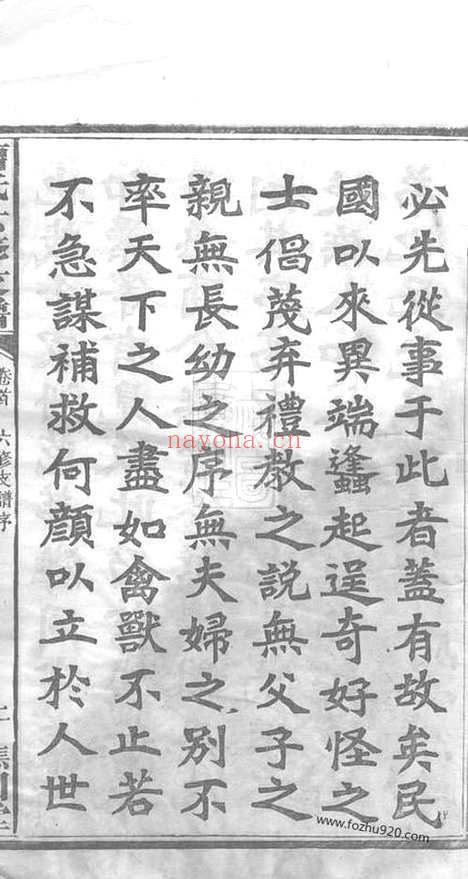 必先從事于此者蓋有故矣民
國以來異端蠭起逞奇好怪之
士倡蔑弃禮教之説無父子之
親無長幼之序無夫婦之别不
率天下之人盡如禽獸不止若
不急謀補救何顔以立於人世
卷首 六修支譜序
nayona.cn
www.fozhu920.com